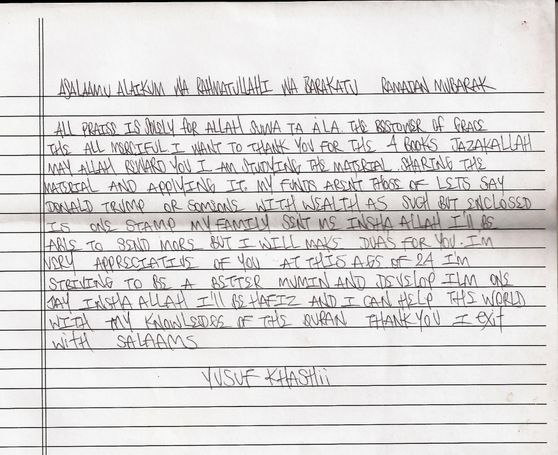 ASALAAMU ALAIKUM WA RAHMATULLAHI WA BARAKATU RAMADAN MUBARAK
ALL PRAISE IS SOLELY FOR ALLAH SUWA TA ALA THE BESTOWER OF GRACE
THE ALL MERCIFUL I WANT TO THANK YOU FOR THE 4 BOOKS JAZAKALLAH
MAY ALLAH REWARD YOU I AM STUDYING THE MATERIAL SHARING THE
MATERIAL AND APPLYING IT. MY FUNDS ARENT THOSE OF LETS SAY
DONALD TRUMP OR SOMEONE WITH WEALTH AS SUCH BUT ENCLOSED
IS ONE STAMP MY FAMILY SENT ME INSHA ALLAH I'LL BE
ABLE TO SEND MORE BUT I WILL MAKE DUAS FOR YOU. I'M
VERY APPRECIATIVE OF YOU AT THIS AGE OF 24 I'M
STRIVING TO BE A BETTER MUMIN AND DEVELOP ILM ONE
DAY INSHA ALLAH I'LL BE HAFIZ AND I CAN HELP THE WORLD
WITH MY KNOWLEDGE OF THE QURAN THANK YOU I EXIT
WITH SALAAMS
YUSUF KHASHII